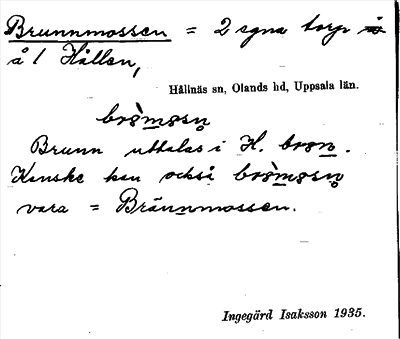 Brunnmossen = 2 egna torp
å 1 Hållen,
Hållnäs sn, Olands hd, Uppsala län.
Brunn uttalas i H.
Kanske kan också
vara = Brännmossen.
Ingegärd Isaksson 1935.